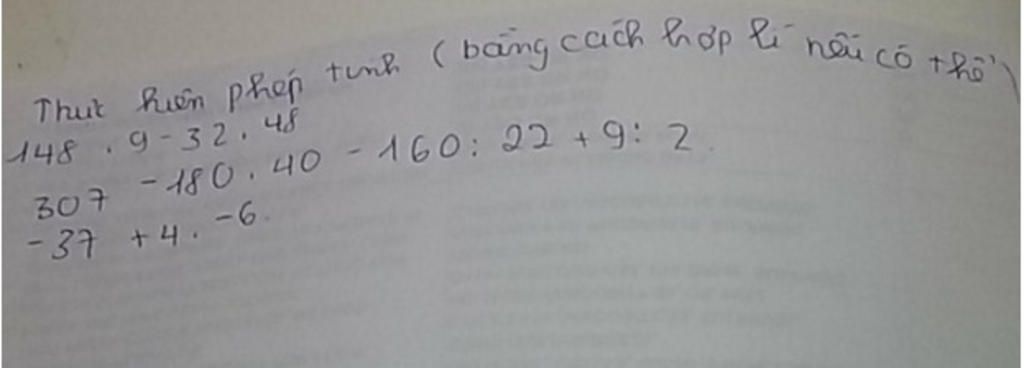 Thực hiện phép tính (bằng cách hợp lí nếu có thể)
148 . 9 - 32 . 48
307 - 180 . 40 - 160 : 22 + 9 : 2.
- 37 + 4 . -6.